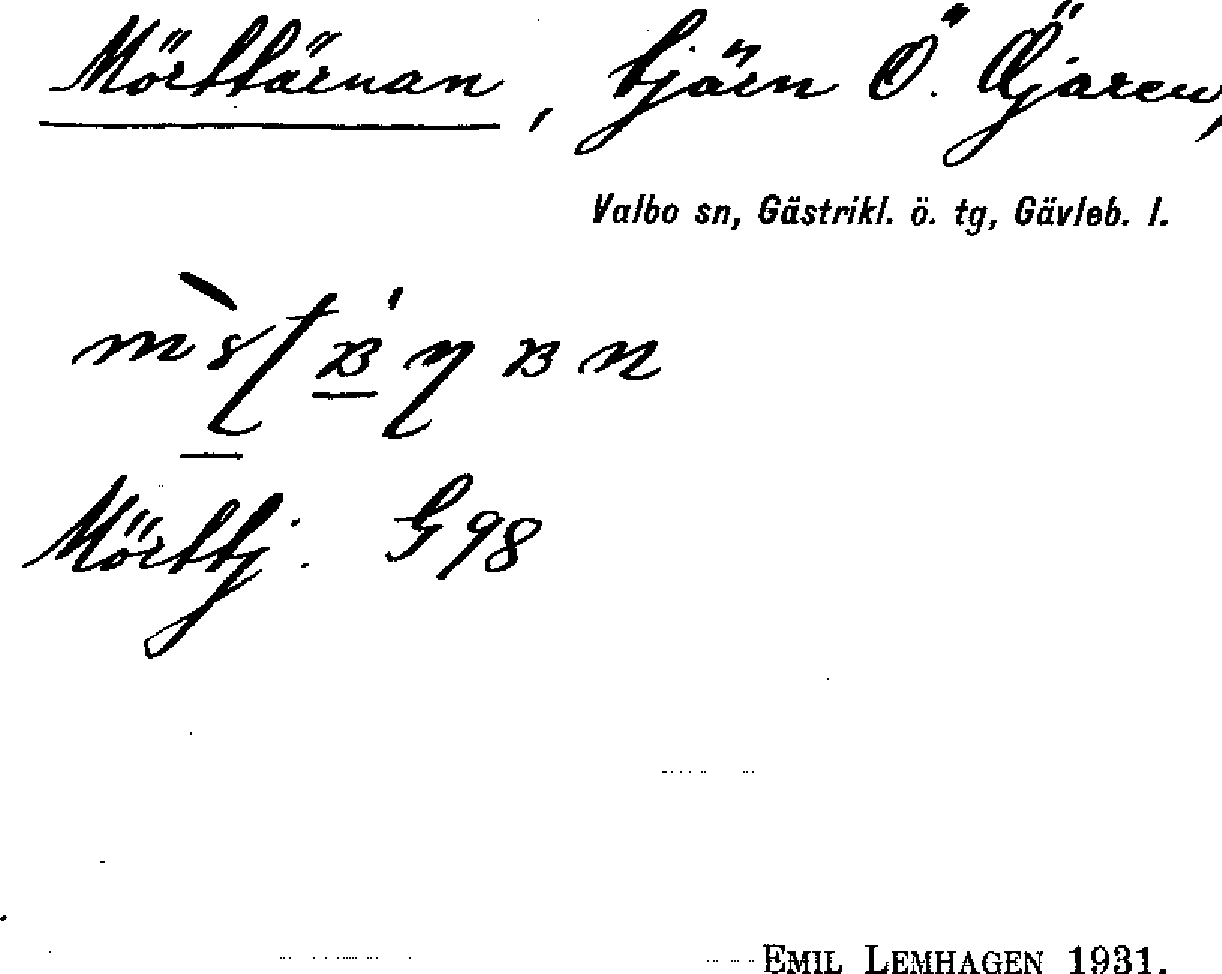 Mörttärnan, tjärn Ö. Öjaren,
Valbo sn, Gästrikl. ö. tg, Gävleb. l.
Mörttj. G 98
EMIL LEMHAGEN 1931.